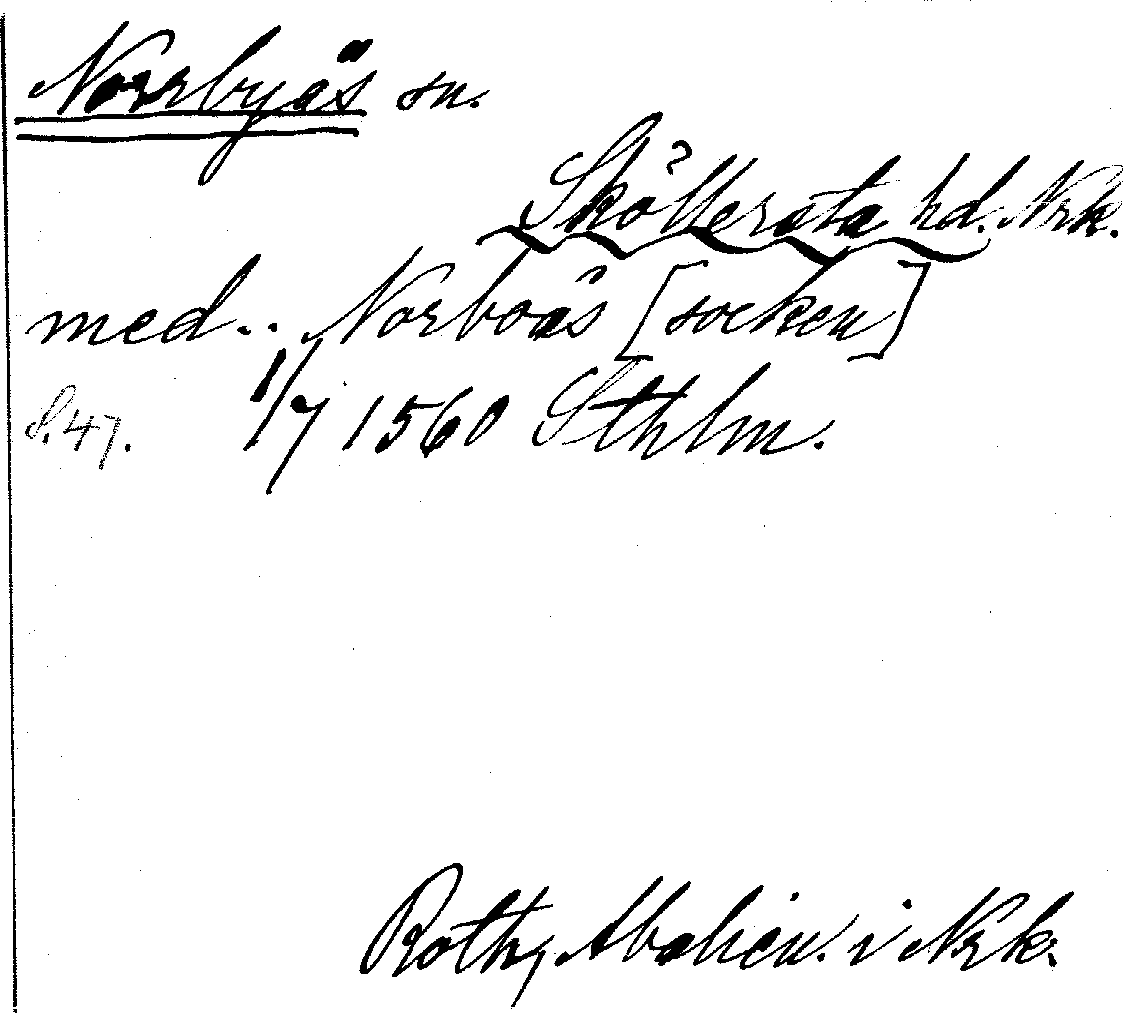 Norrbyås sn.
Sköllersta hd. Nrk.
med.. Norboås [socken]
S.47. 1/7 1560 Sthlm.
Roth, Abalien. i Nrk.